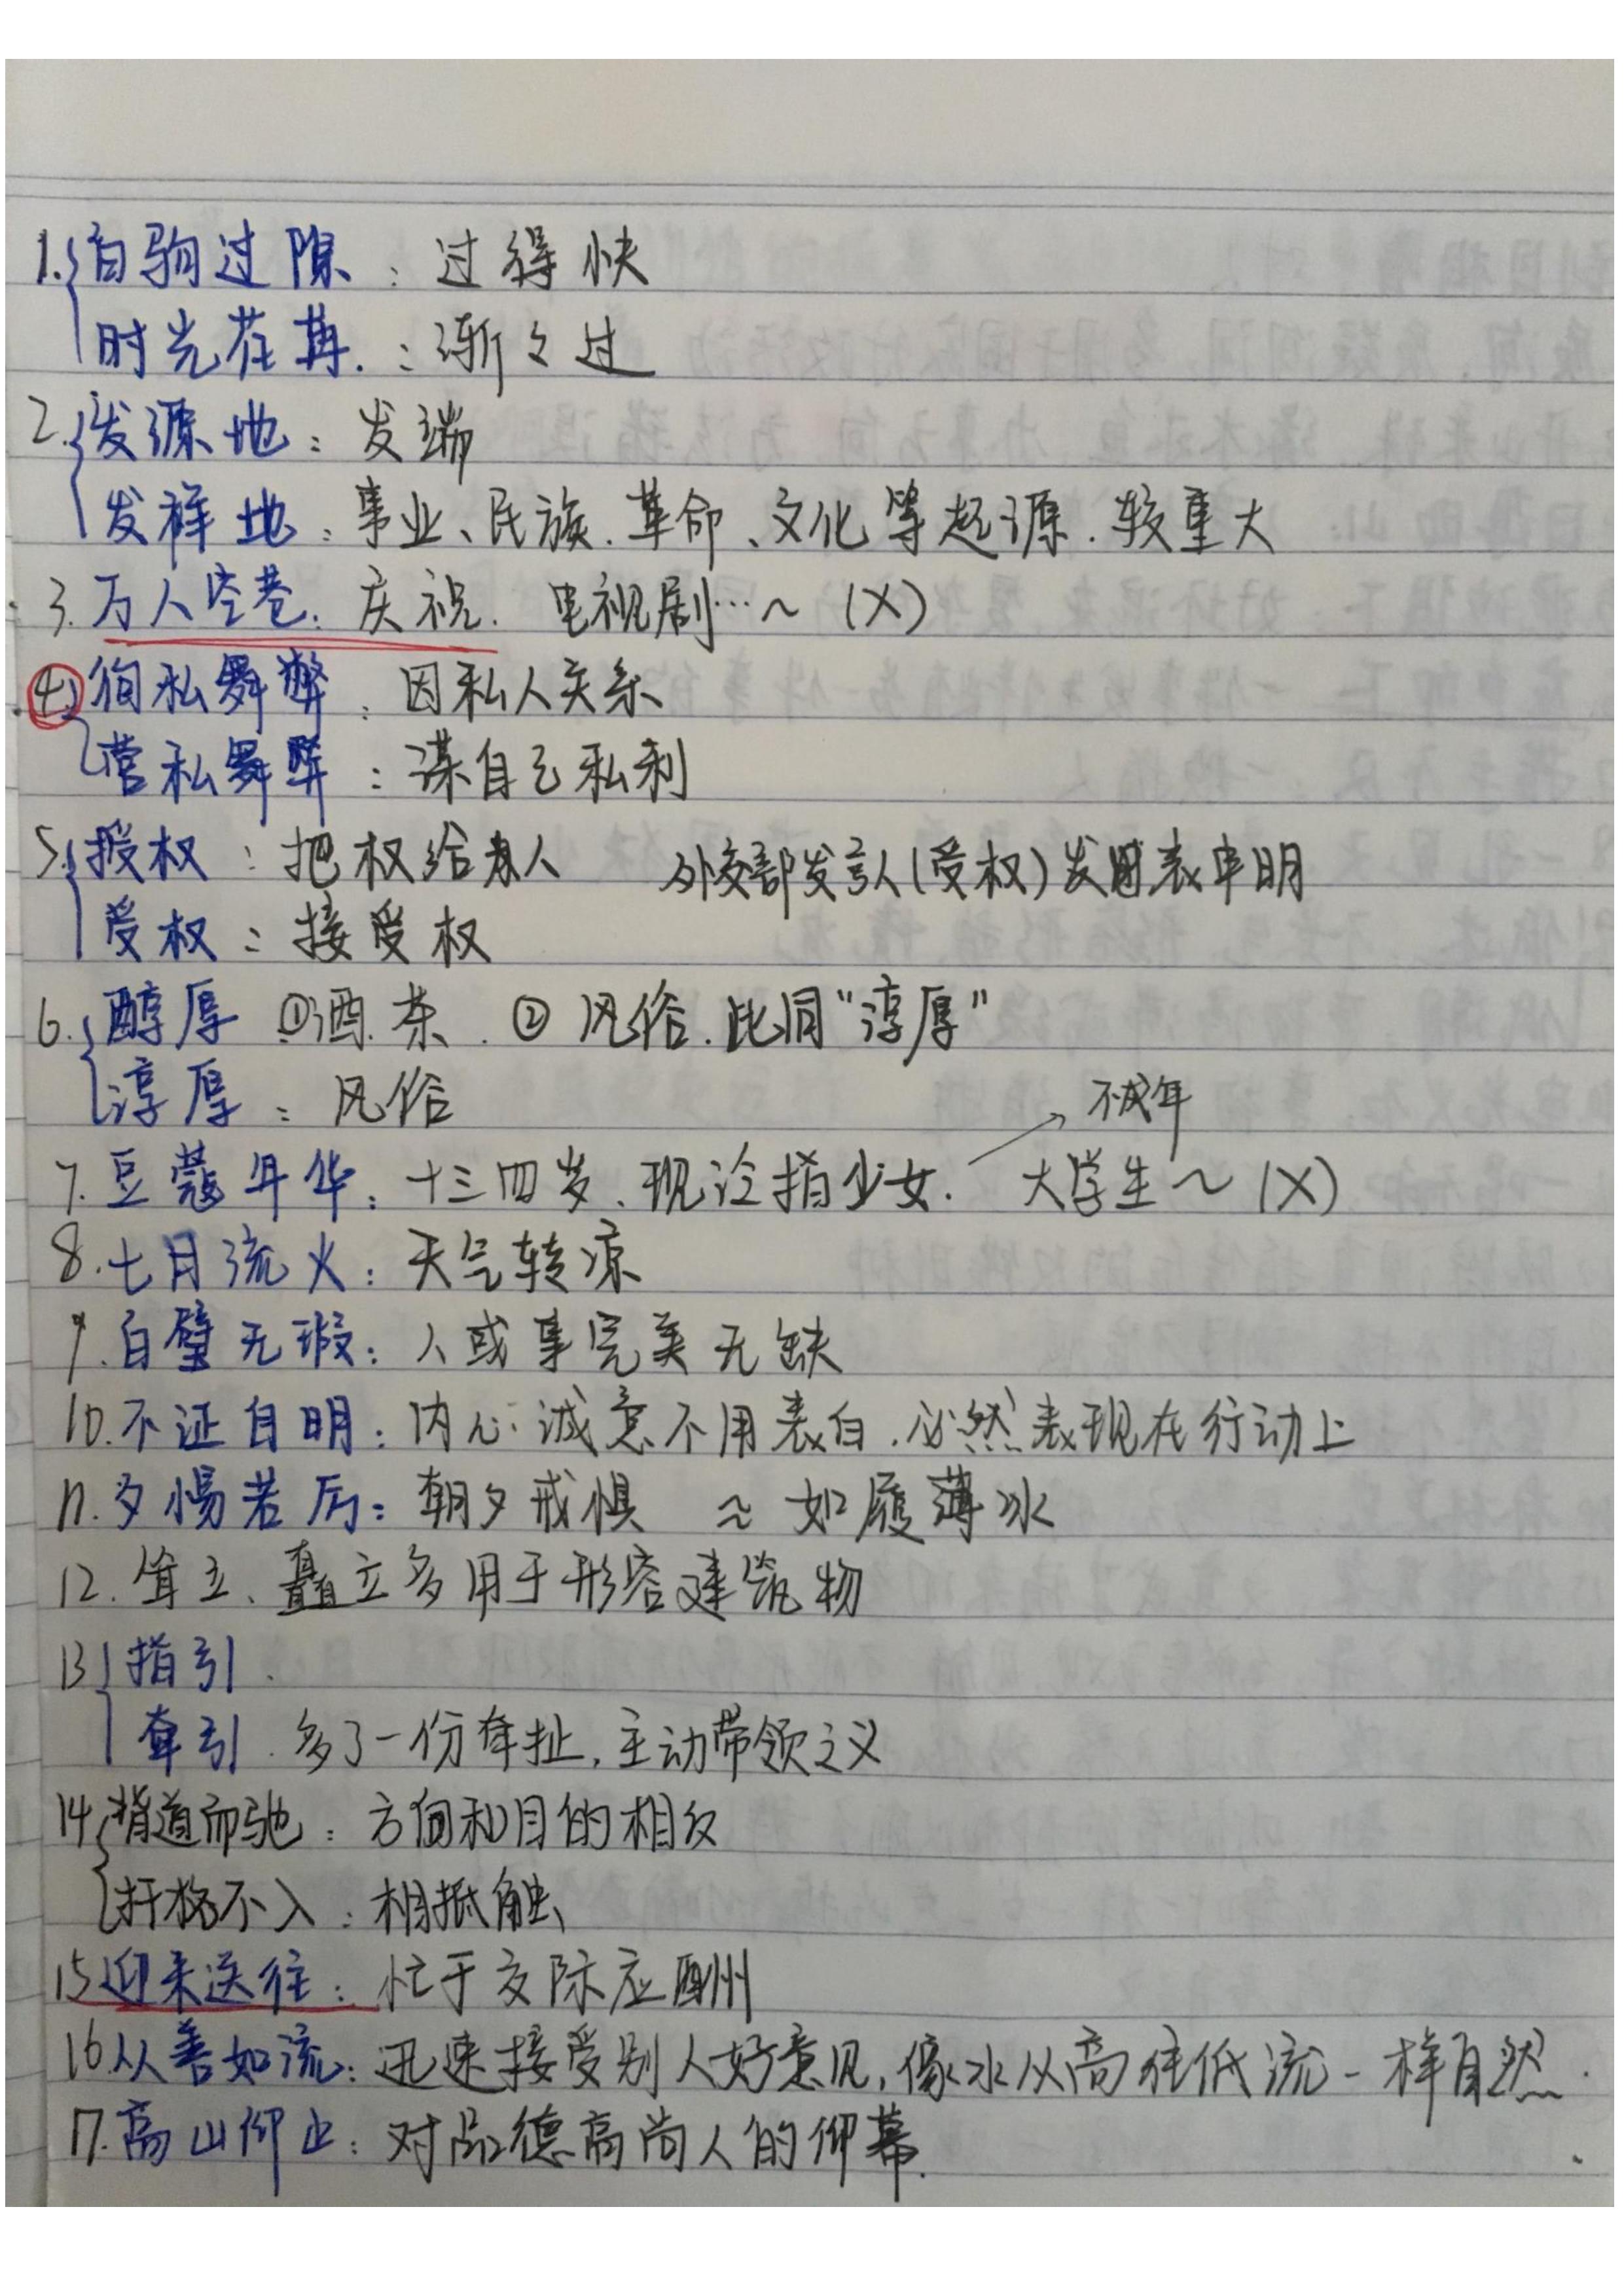 1.白驹过隙：过得快
时光荏苒.：渐々过
2.发源地：发端
发祥地：事业、民族.革命、文化等起源.较重大
3.万人空巷.庆祝. 电视剧…~ (X)
④徇私舞弊：因私人关系
营私舞弊：谋自己私利
5.授权：把权给别人 外交部发言人(受权)发表申明
受权：接受权
6.醇厚 ①酒.茶. ②风俗.此同"淳厚"
淳厚：风俗
不成年
7.豆蔻年华：十三四岁.现泛指少女. 大学生~ (X)
8.七月流火：天气转凉
9.白璧无瑕：人或事完美无缺
10.不证自明：内心诚意不用表白.必然表现在行动上
11.夕惕若厉：朝夕戒惧 ≈ 如履薄冰
12.耸立、矗立多用于形容建筑物
13指引.
牵引.多了一份牵扯,主动带领之义
14背道而驰：方向和目的相反
扞格不入：相抵触
15迎来送往：忙于交际应酬
16.从善如流：迅速接受别人好意见,像水从高往低流一样自然.
17.高山仰止：对品德高尚人的仰慕.